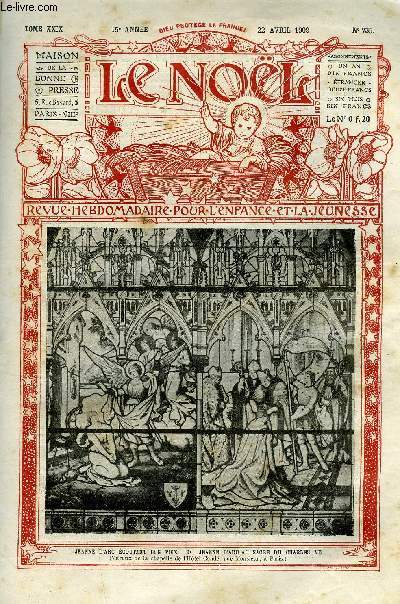 www.le-livre.com
TOME XXIX
15e ANNÉE
DIEU PROTÈGE LA FRANCE!
22 AVRIL 1909
MAISON
DE LA
BONNE
PRESSE
5, R. Bayard, 5
PARIS
LE NOËL
ABONNEMENTS
UN AN
DIX FRANCS
ÉTRANGER
SIX MOIS
SIX FRANCS
Le No 0 F. 20
REVUE-HEBDOMADAIRE-POUR-L'ENFANCE-ET-LA-JEUNESSE
JEANNE D'ARC JEANNE D'ARC AU SACRE DE CHARLES VII
de la chapelle de l'Hôtel Paris